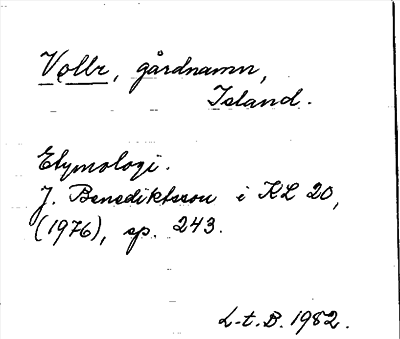 Vǫllr, gårdnamn,
Island.
Etymologi.
J. Benediktsson i KL 20,
(1976), sp. 243.
L-t. B. 1982.